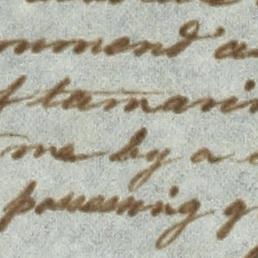 ommend a
f tamarin
me by a
possessing g